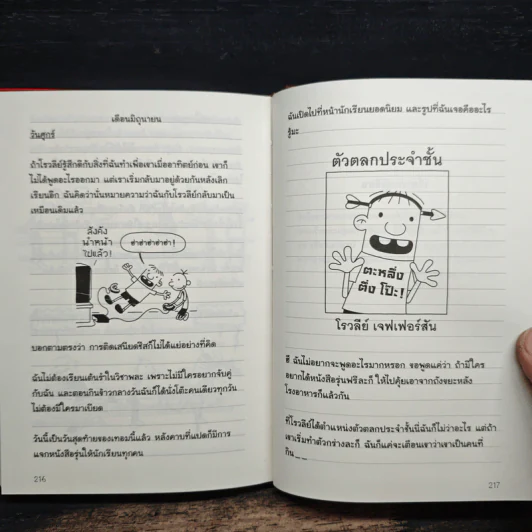 เดือนมิถุนายน
วันศุกร์
ถ้าโรวลีย์รู้สึกดีกับสิ่งที่ฉันทำเพื่อเขาเมื่ออาทิตย์ก่อน เขาก็
ไม่ได้พูดอะไรออกมา แต่เราเริ่มกลับมาอยู่ด้วยกันหลังเลิก
เรียนอีก ฉันคิดว่านั่นหมายความว่าฉันกับโรวลีย์กลับมาเป็น
เหมือนเดิมแล้ว
ลังคัง
ฟาหน้า
ไปแล้ว!
ฮ่าฮ่าฮ่าฮ่าฮ่า!
บอกตามตรงว่า การติดเสนียดชีสก็ไม่ได้แย่อย่างที่คิด
ฉันไม่ต้องเรียนเต้นรำในวิชาพละ เพราะไม่มีใครอยากจับคู่
กับฉัน และตอนกินข้าวกลางวันฉันก็ได้นั่งโต๊ะคนเดียวทุกวัน
ไม่ต้องมีใครมาเบียด
วันนี้เป็นวันสุดท้ายของเทอมนี้แล้ว หลังคาบที่แปดก็มีการ
แจกหนังสือรุ่นให้นักเรียนทุกคน
216
ฉันเปิดไปที่หน้านักเรียนยอดนิยม และรูปที่ฉันเจอคืออะไร
รู้มะ
ตัวตลกประจำชั้น
ตะหลึ่ง
ตึ่ง โป๊ะ!
โรวลีย์ เจฟเฟอร์สัน
ฮึ ฉันไม่อยากจะพูดอะไรมากหรอก ขอพูดแค่ว่า ถ้ามีใคร
อยากได้หนังสือรุ่นฟรีละก็ ให้ไปคุ้ยเอาจากถังขยะหลัง
โรงอาหารก็แล้วกัน
ที่โรวลีย์ได้ตำแหน่งตัวตลกประจำชั้นนี่ฉันก็ไม่ว่าอะไร แต่ถ้า
เขาเริ่มทำตัวกร่างละก็ ฉันก็แค่จะเตือนเขาว่าเขาเป็นคนที่
กิน_ _
217